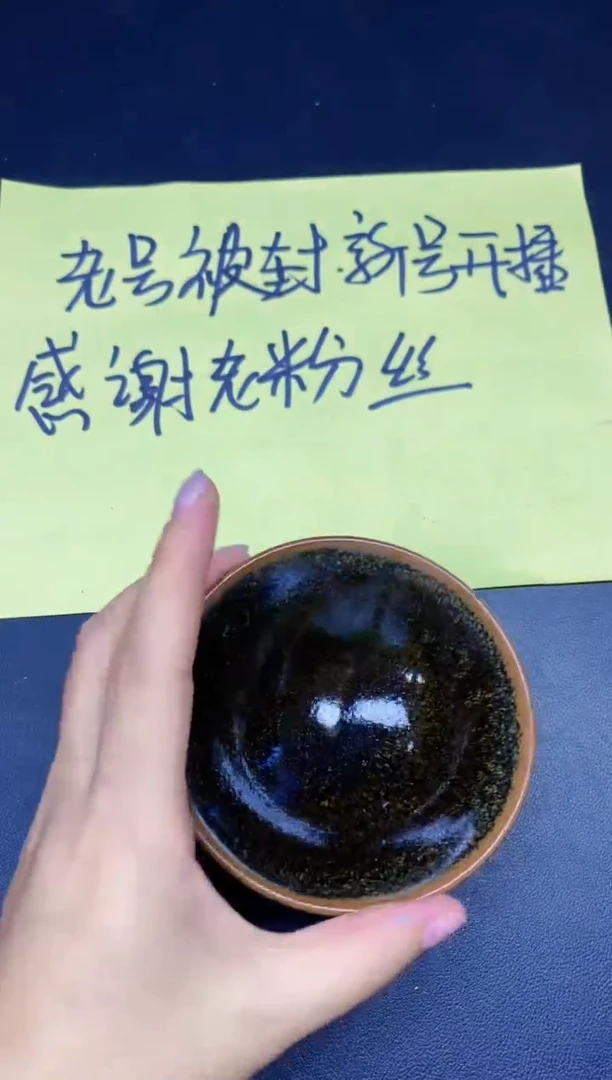 老号被封.新号开播
感谢老粉丝